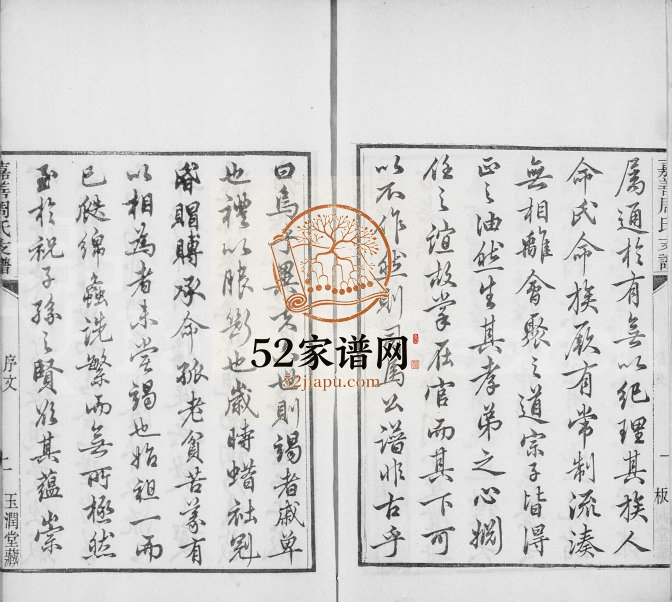 嘉善周氏支譜
屬通於有無以紀理其族人
命氏命族厥有常制流湊
無相離會聚之道宗子皆得
正之油然生其孝弟之心嫺
任之誼故掌在官而其下可
以不作然則司馬公譜非古乎
一板
曰烏乎異世則謁者戚單
也禮以賑銜也歲時蜡社冠
昏賵賻承命孤老貧苦蒙有
以相為者未嘗謁也始祖一而
已瓞綿螽詵繁而無所極然
至於祝子孫之賢欲其蘊崇
嘉善周氏支譜
序文
十一
玉潤堂藏
52家谱网
52jiapu.com